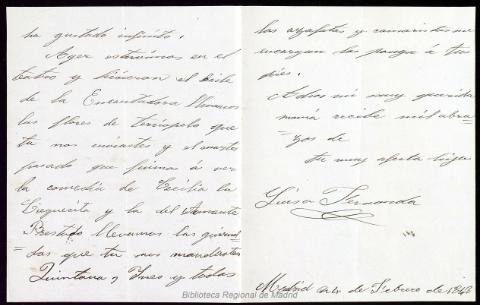 ha gustado infinito.
Ayer estuvimos en el
teatro y hicieron el baile
de la Encantadora llevamos
las flores de terciopelo que
tu nos enviastes y el martes
pasado que fuimos á ver
la comedia de Cecilia la
Cieguecita y la del Amante
Prestado llevamos las guirnal-
das que tu nos mandastes
Quintana, Ynes y todas
las azafatas y camaristas me
encargan las ponga á tus
pies.
Adios mi muy querida
mamá recibe mil abra-
zos de
tu muy afecta hija
Luisa Fernanda
Madrid 24 de Febrero de 1843
Biblioteca Regional de Madrid